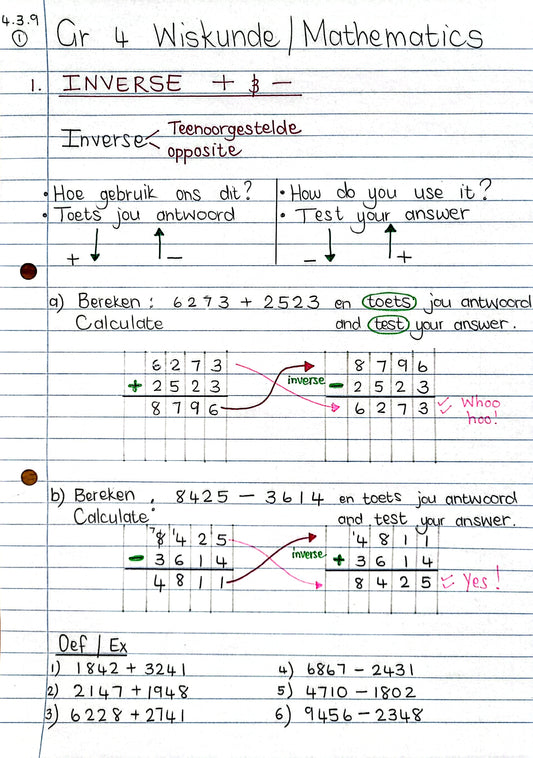 4.3.9
①
Gr 4 Wiskunde / Mathematics
1. INVERSE + & -
Inverse < Teenoorgestelde
opposite
• Hoe gebruik ons dit?
• Toets jou antwoord
+ ↓ ↑ -
• How do you use it?
• Test your answer
- ↓ ↑ +
a) Bereken : 6273 + 2523 en toets jou antwoord
Calculate and test your answer.
6 2 7 3
+ 2 5 2 3
8 7 9 6
inverse
8 7 9 6
- 2 5 2 3
6 2 7 3 ✓✓ Whoo
hoo!
b) Bereken : 8425 - 3614 en toets jou antwoord
Calculate and test your answer.
⁷8 ¹4 2 5
- 3 6 1 4
4 8 1 1
inverse
¹4 8 1 1
+ 3 6 1 4
8 4 2 5 ✓✓ Yes!
Oef / Ex
1) 1842 + 3241
2) 2147 + 1948
3) 6228 + 2741
4) 6867 - 2431
5) 4710 - 1802
6) 9456 - 2348